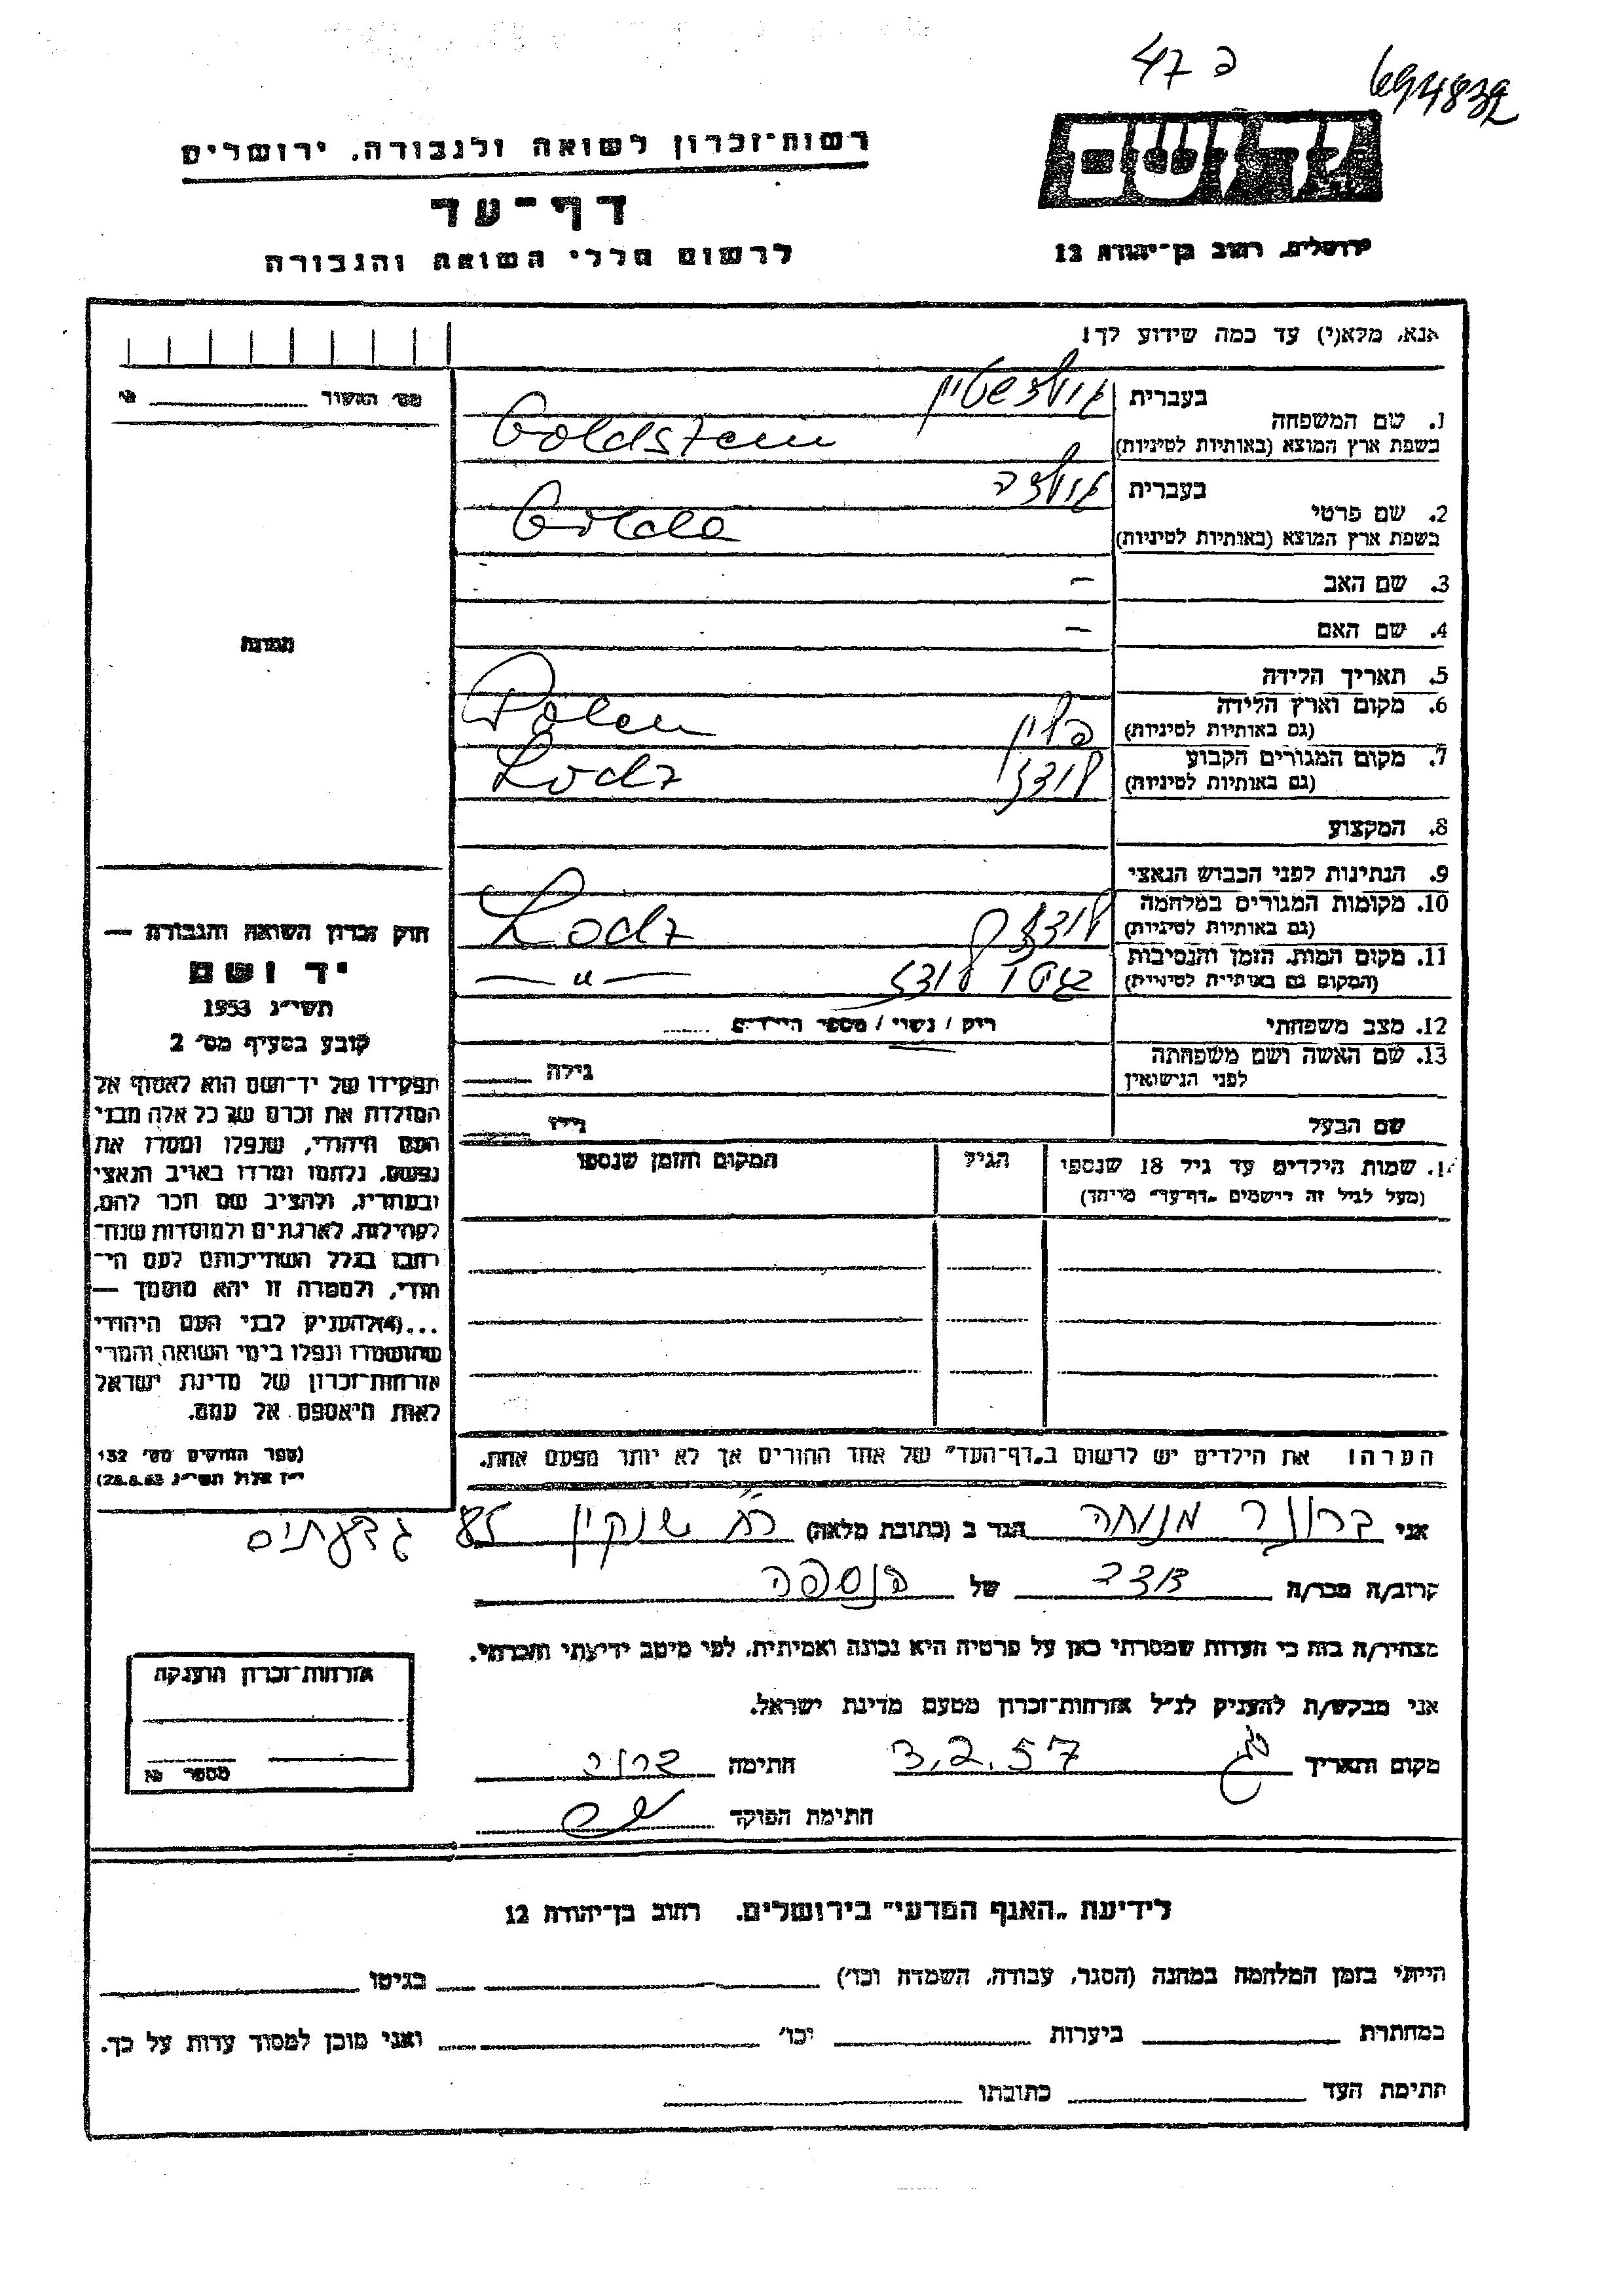 47 פ
694832
יד ושם
רשות-זכרון לשואה ולגבורה, ירושלים
דף-עד
לרשום חללי השואה והגבורה
ירושלים, רחוב בן-יהודה 12
אנא, מלא(י) עד כמה שידוע לך!
מס׳ האשור № 
1. שם המשפחה
בעברית גולדשטיין
בשפת ארץ המוצא (באותיות לטיניות) Goldstein
2. שם פרטי
בעברית גולדה
בשפת ארץ המוצא (באותיות לטיניות) Golda
3. שם האב –
4. שם האם –
5. תאריך הלידה
6. מקום וארץ הלידה פולין Polen
(גם באותיות לטיניות)
7. מקום המגורים הקבוע לודז Lodz
(גם באותיות לטיניות)
8. המקצוע
9. הנתינות לפני הכבוש הנאצי
10. מקומות המגורים במלחמה לודז Lodz
(גם באותיות לטיניות)
11. מקום המות, הזמן והנסיבות גיטו לודז — " —
(המקום גם באותיות לטיניות)
12. מצב משפחתי רוק / נשוי / מספר הילדים
13. שם האשה ושם משפחתה גילה
לפני הנישואין
שם הבעל גילו
14. שמות הילדים עד גיל 18 שנספו הגיל המקום והזמן שנספו
(מעל לגיל זה רושמים "דף-עד" מיוחד)
תמונה
חוק זכרון השואה והגבורה —
יד ושם
תשי״ג 1953
קובע בסעיף מס׳ 2
תפקידו של יד-ושם הוא לאסוף אל
המולדת את זכרם של כל אלה מבני
העם היהודי, שנפלו ומסרו את
נפשם, נלחמו ומרדו באויב הנאצי
ובעוזריו, ולהציב שם וזכר להם,
לקהילות, לארגונים ולמוסדות שנח-
רבו בגלל השתייכותם לעם הי-
הודי, ולמטרה זו יהא מוסמך —
...(4)להעניק לבני העם היהודי
שהושמדו ונפלו בימי השואה והמרי
אזרחות-זכרון של מדינת ישראל
לאות היאספם אל עמם.
(ספר החוקים מס׳ 132
י״ז אלול תשי״ג 28.8.53)
הערה! את הילדים יש לרשום ב"דף-העד" של אחד ההורים אך לא יותר מפעם אחת.
אני ברונר מנוחה הגר ב (כתובת מלאה) רח׳ שנקין גבעתיים
קרוב/ה מכר/ה דודה של הנספה
מצהיר/ה בזה כי העדות שמסרתי כאן על פרטיה היא נכונה ואמיתית, לפי מיטב ידיעתי והכרתי.
אני מבקש/ת להעניק לנ״ל אזרחות-זכרון מטעם מדינת ישראל.
מקום ותאריך 3.2.57 חתימה
חתימת הפוקד
אזרחות-זכרון הוענקה
מספר №
לידיעת "האגף המדעי" בירושלים. רחוב בן-יהודה 12
הייתי בזמן המלחמה במחנה (הסגר, עבודה, השמדה וכו׳) בגיטו
במחתרת ביערות וכו׳ ואני מוכן למסור עדות על כך.
חתימת העד כתובתו